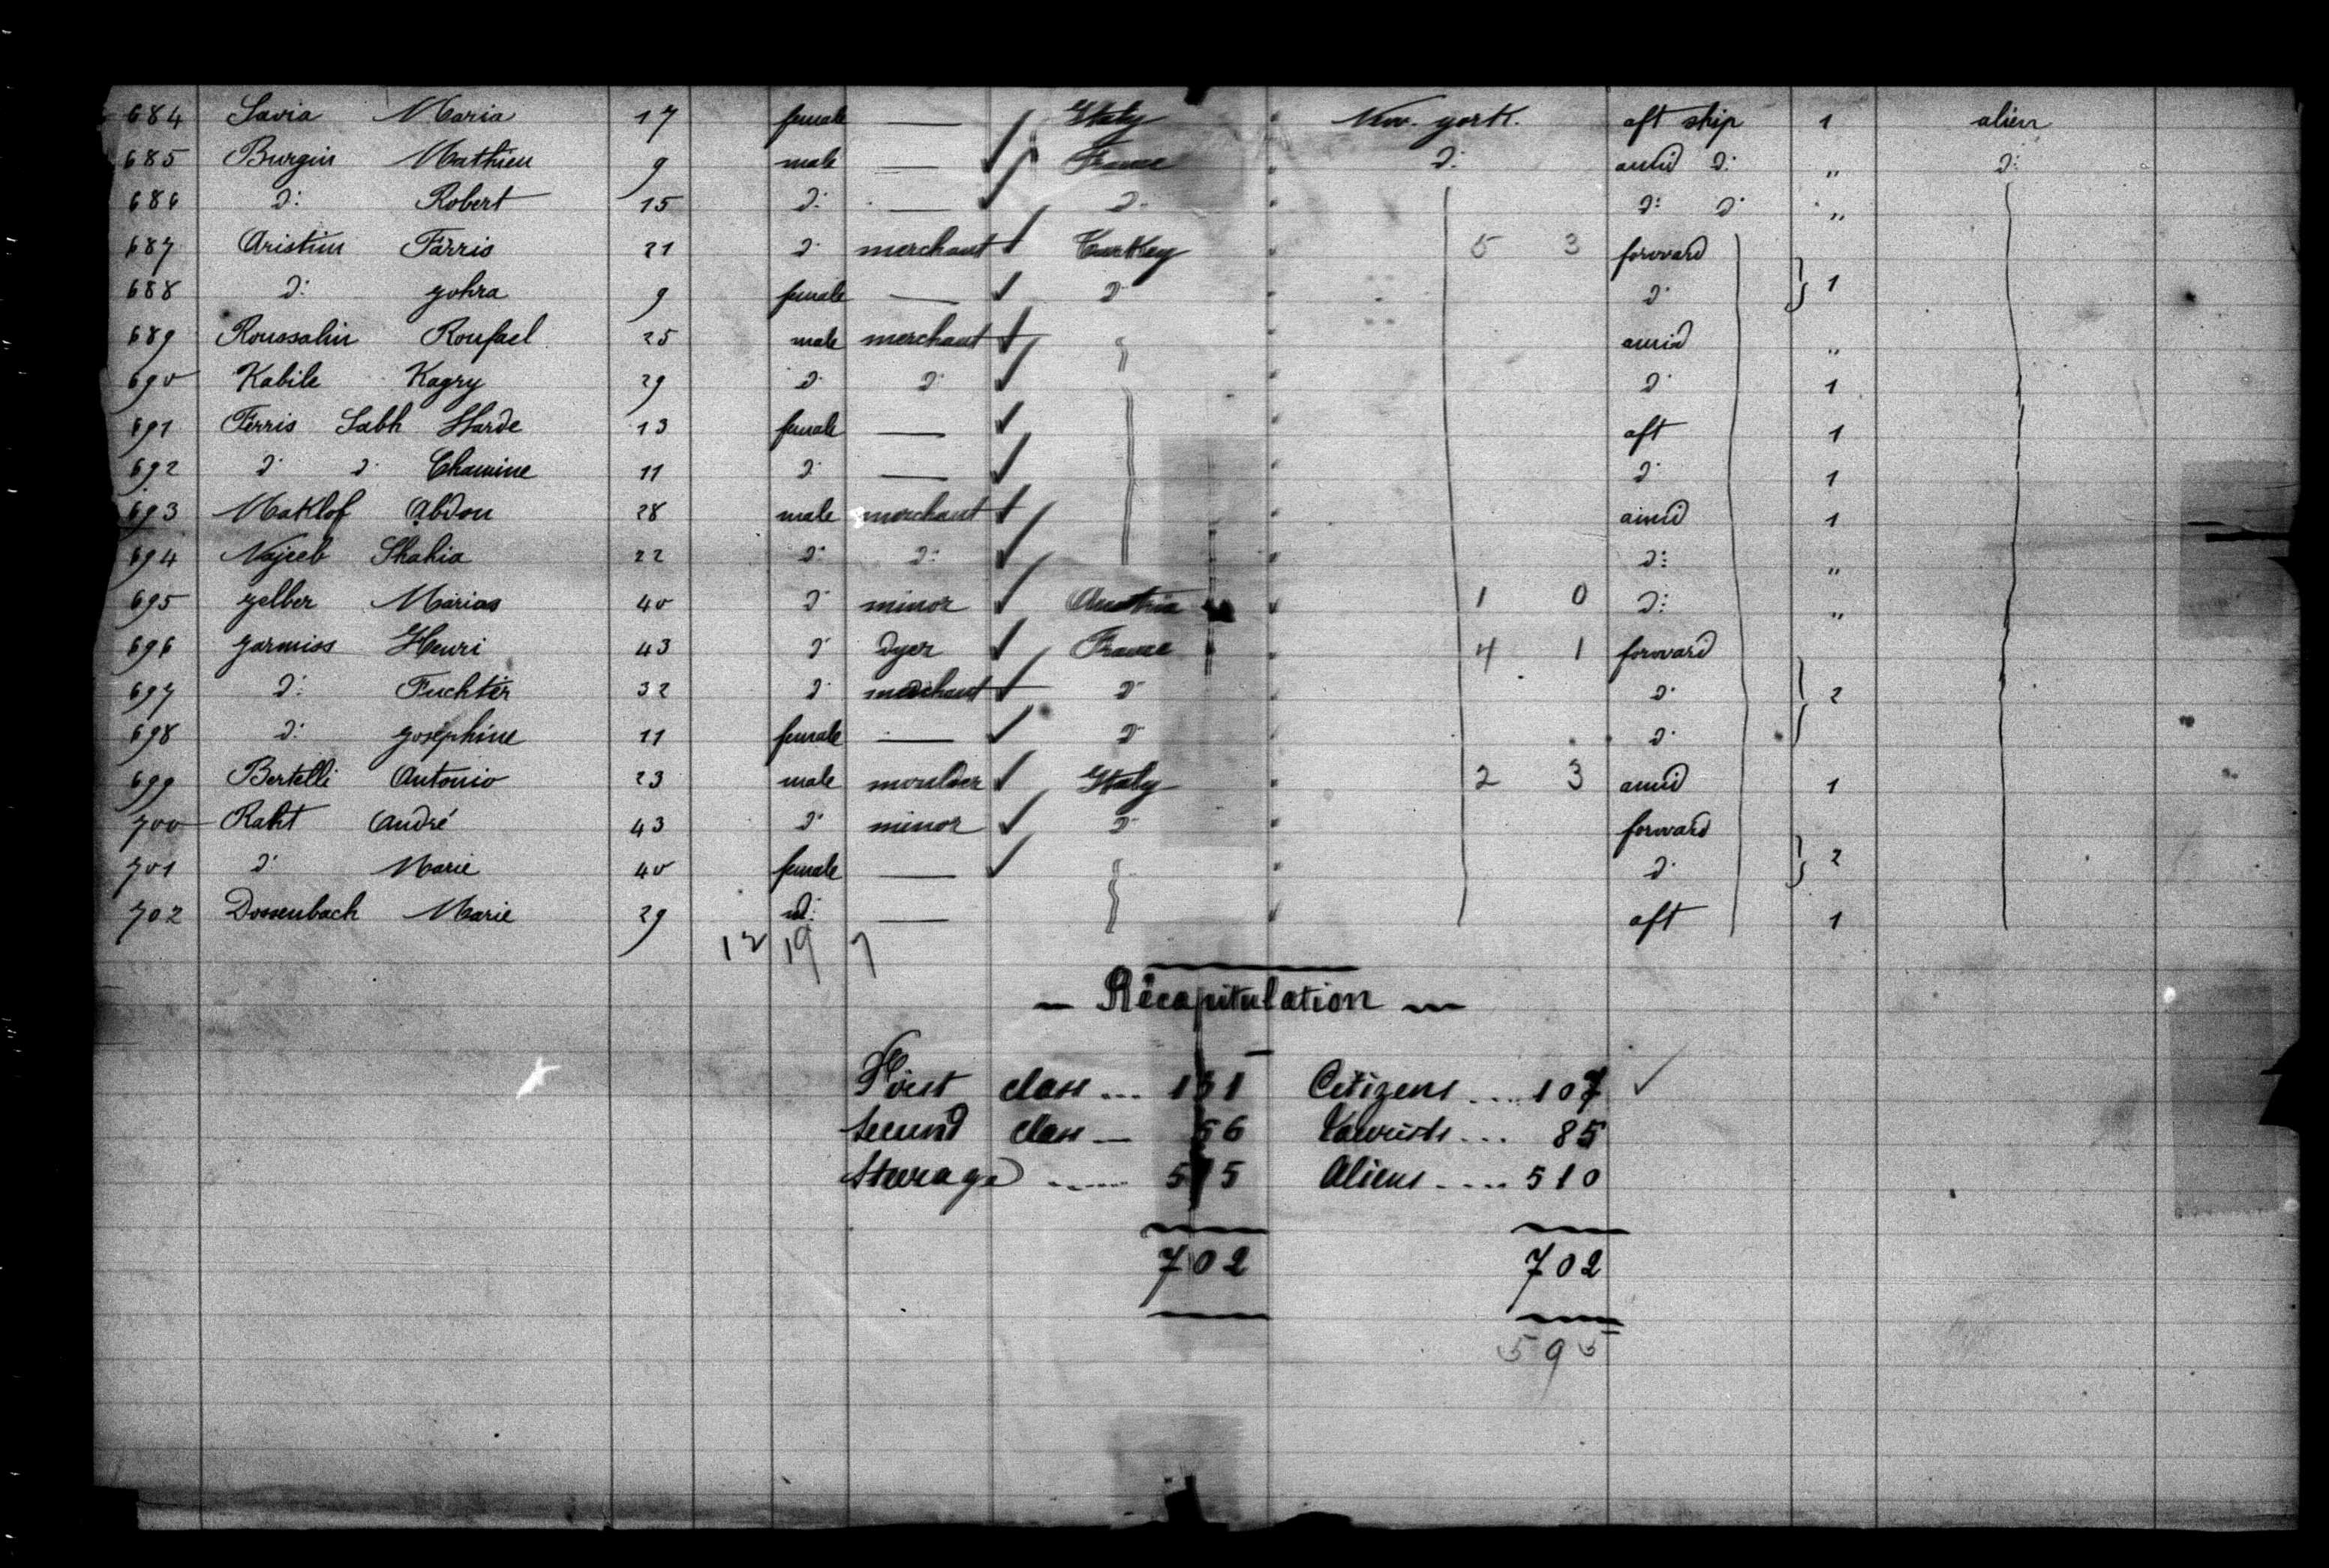 684 Savia Maria 17 female — Italy New. york. aft ship 1 alien
685 Burgin Mathieu 9 male — France d: amid d: " d:
686 d: Robert 15 d: — d: d: d: "
687 Aristim Farris 21 d: merchant Turkey 5 3 forward
688 d: Johra 9 female — d: d: 1
689 Roussalin Roufael 25 male merchant amid "
690 Kabile Kagry 29 d: d: d: 1
691 Ferris Sabh Harde 13 female — aft 1
692 d: d: Chamine 11 d: — d: 1
693 Maklof Abdou 28 male merchant amid 1
694 Najeeb Shahia 22 d: d: d: "
695 Gelber Marias 40 d: minor Austria 1 0 d: "
696 Jarmiss Henri 43 d: dyer France 4 1 forward
697 d: Fuchter 32 d: merchant d: d: 2
698 d: Joséphine 11 female — d: d:
699 Bertelli Antonio 23 male moulder Italy 2 3 amid 1
700 Raht André 43 d: minor d: forward
701 d: Marie 40 female — d: 2
702 Dossenbach Marie 29 d: — aft 1
12 19 7
— Récapitulation —
First class ... 131 Citizens .... 107
Second class — 56 Tourists ... 85
Steerage ...... 515 Aliens .... 510
702 702
595